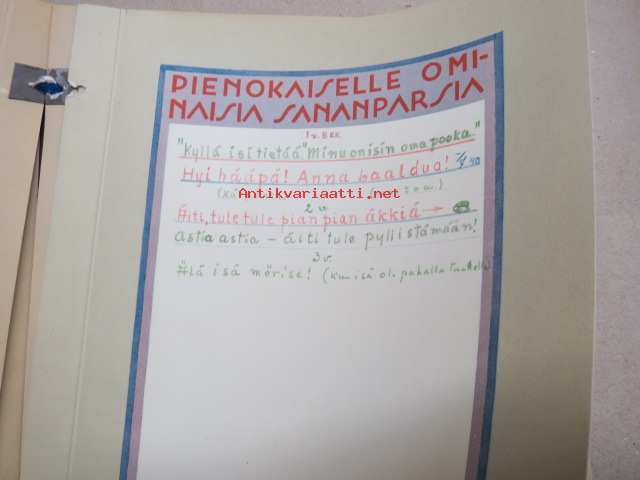 PIENOKAISELLE OMI-
NAISIA SANANPARSIA
1 v. 8 kk
"Kyllä isi tietää" "Minu on isin oma pooka."
Hyi hääpä! Anna baalduo!
Antikvariaatti.net
2 v.
Äiti, tule tule pian pian äkkiä →
astia astia - äiti tule pyllistämään!
3 v.
Älä isä mörise! (kun isä oli pahalla tuulella)